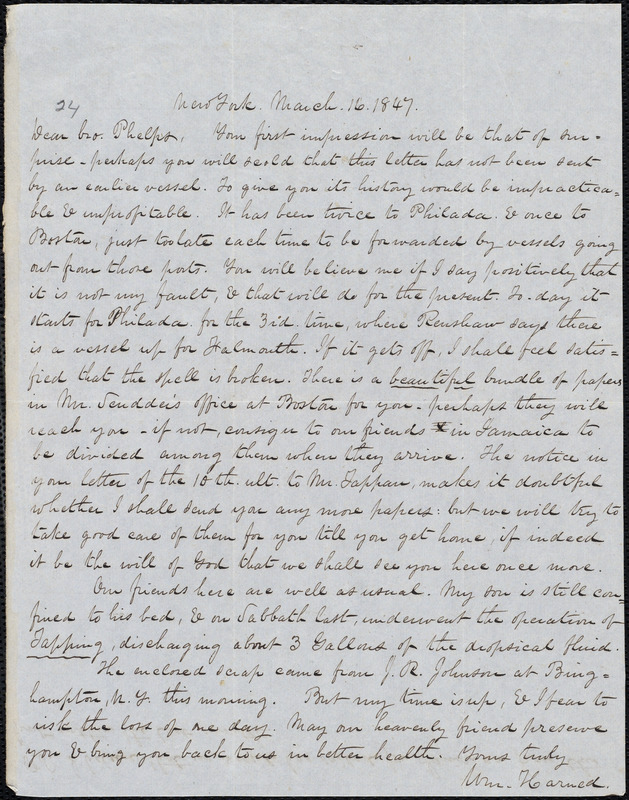 24
New York. March. 16. 1847.
Dear bro. Phelps, Your first impression will be that of sur=
prise - perhaps you will scold that this letter has not been sent
by an earlier vessel. To give you its history would be impractica=
ble & unprofitable. It has been twice to Philada. & once to
Boston, just too late each time to be forwarded by vessels going
out from those ports. You will believe me if I say positively that
it is not my fault, & that will do for the present. To-day it
starts for Philada. for the 3id. time, where Renshaw says there
is a vessel up for Falmouth. If it gets off, I shall feel satis=
fied that the spell is broken. There is a beautiful bundle of papers
in Mr. Scudder's office at Boston for you - perhaps they will
reach you - if not, consign to our friends in Jamaica to
be divided among them when they arrive. The notice in
your letter of the 10th. ult. to Mr. Tappan, makes it doubtful
whether I shall send you any more papers: but we will try to
take good care of them for you till you get home, if indeed
it be the will of God that we shall see you here once more.
Our friends here are well as usual. My son is still con=
fined to his bed, & on Sabbath last, underwent the operation of
Tapping, discharging about 3 Gallons of the dropsical fluid.
The enclosed scrap came from J. R. Johnson at Bing=
hampton, N. Y. this morning. But my time is up, & I fear to
risk the loss of one day. May our heavenly friend preserve
you & bring you back to us in better health. Yours truly
Wm. Harned.